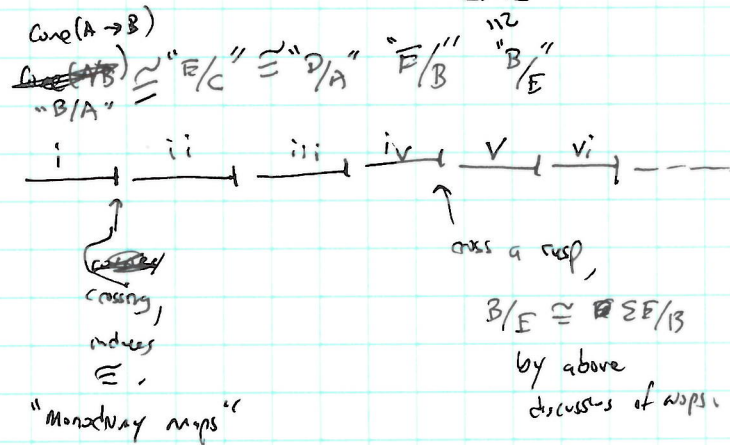 Cone(A → B)
"B/A" ≅ "E/C" ≅ "D/A" "E/B" "B/E"
i ii iii iv v vi
crossing,
induces
≅.
"Monodromy maps"
cross a cusp,
B/E ≅ ΣE/B
by above
discussions of